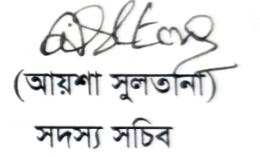 (আয়শা সুলতানা)
সদস্য সচিব